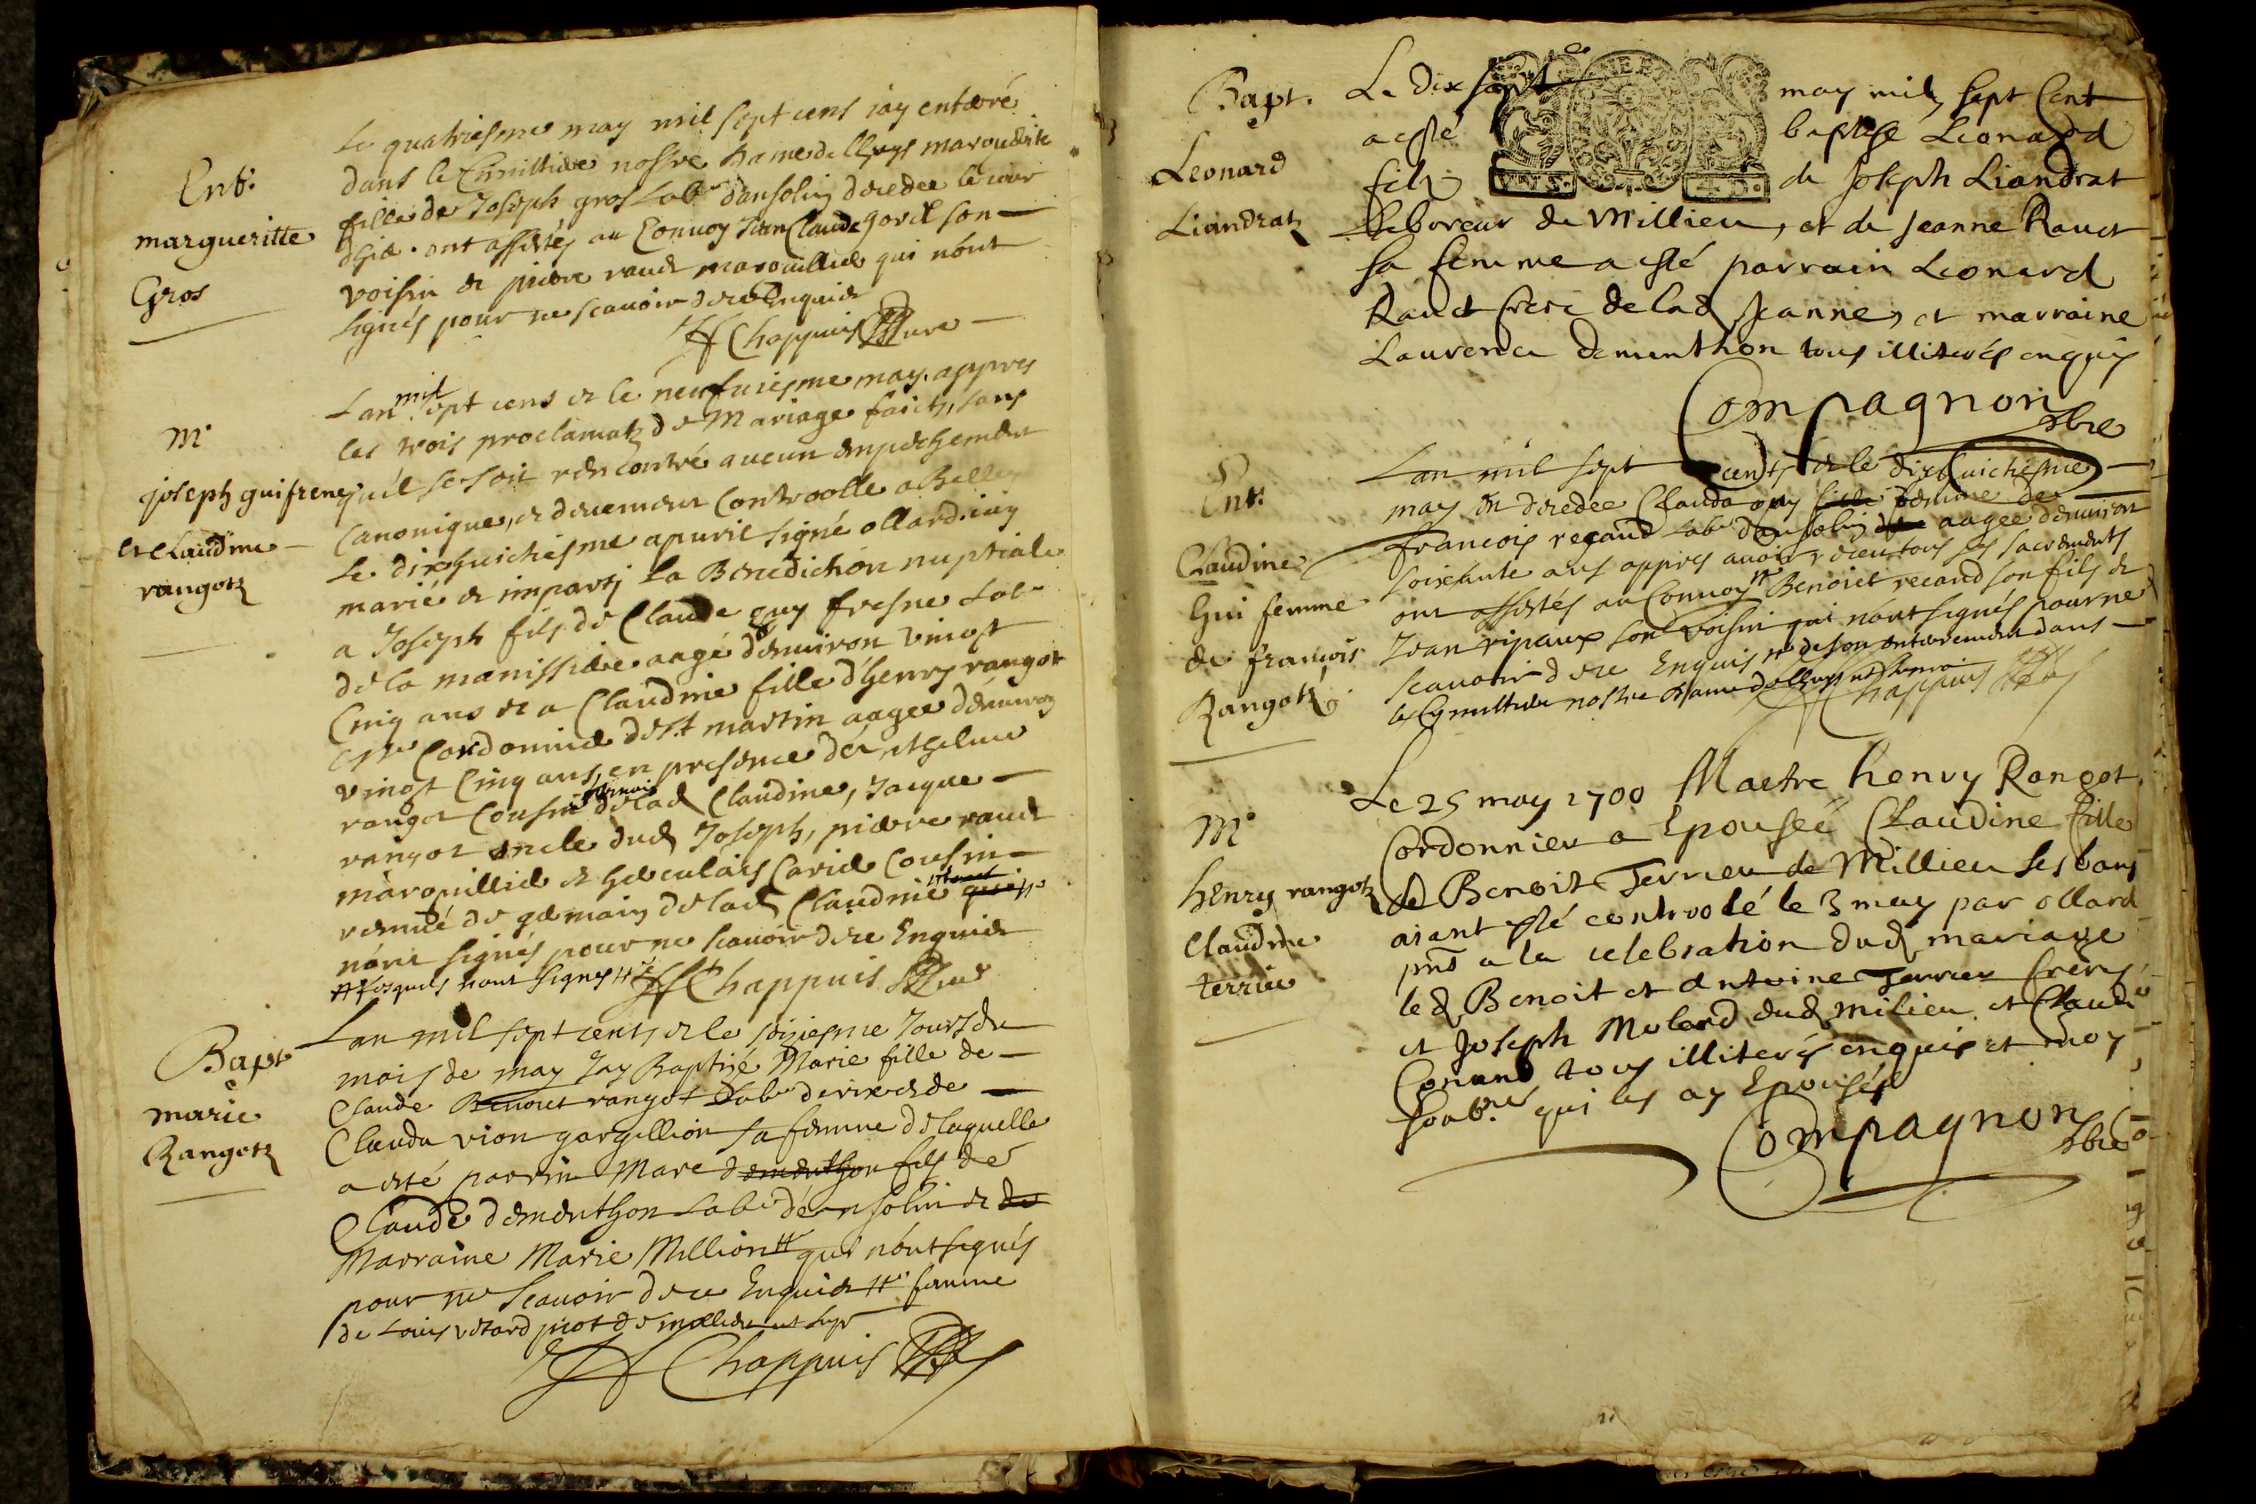 Ent.
margueritte
Gros
Le quatriesme may mil sept cens iay enterré
dans le Cimittiere nostre dame marguerite
fille de Joseph gros Lab^r dansolin decedee le iour
dhier. ont assistés au Convoy Jean Claude son
voisin et pierre raud marouillier qui nont
signés pour ne scauoir de ce Enquis
Chappuis Cure
M.
joseph guifrene
et claudine
rangotz
Lan mil sept cens et le neufuiesme may. appres
les trois proclamatz de Mariage faicts, sans
quil se soit rencontré aucun empeschement
Canonique, et deuement Controolle a Belley
Le dixhuictiesme apuril signé ollard. iay
marié et imparty La Benediction nuptiale
a Joseph fils de Claude guy fresne Lab^r
de la manissiere aagé denuiron vingt
Cinq ans et a Claudine fille d'henry rangot
M^re Cordonnier de St martin aagee denuiron
vingt Cinq ans, en presence de Anthelme
rangot Cousin germain de lad Claudine, Jacque
rangot oncle dud Joseph, pierre raud
marouillier et Cavier Cousin
remué de germain de lad Claudine
nont signés pour ne scauoir de ce Enquis
lesquels nont signés
Chappuis Cure
Bapt
marie
Rangotz
Lan mil sept cents et le seiziesme Jour du
mois de may Jay Baptisé Marie fille de
Claude Benoict rangot Lab^r et de
Clauda vion gargillion sa femme de laquelle
a esté parrin Marc dementhon fils de
Claude dementhon Lab^r de ansolin et de
Marraine Marie Million qui nont signés
pour ne Scauoir de ce Enquis femme
de Louis
Chappuis
Bapt.
Leonard
Liandratz
Le dix sept may mil sept Cent
a esté baptisé Leonard
fils de Joseph Liandrat
laboreur de Millieu, et de Jeanne Raud
sa femme a esté parrain Leonard
Raud frere de lad Jeanne, et marraine
Laurence dementhon tous illiterés enquis
Compagnon pbre
Ent.
Claudine
Gui femme
de francois
Rangotz
Lan mil sept cents et le dixhuictiesme
may est decedee Clauda guy fille femme de
francois regaud Lab^r dansolin aagee denuiron
soixante ans appres auoir receu tous ses sacrements
ont assistés au Convoy Benoict regaud son fils et
Jean ripaux son voisin qui nont signés pour ne
scauoir de ce Enquis de son enterrement dans
le Cymittiere nostre dame
Chappuis
M.
henry rangotz
Claudine
terrier
Le 25 may 1700 Maetre henry Rangot
Cordonnier a Epouseé Claudine fille
de Benoit Terrier de Millieu ses bans
aiant esté controolé le 3 may par ollard
pnts a la celebration dud mariage
led Benoit et Antoine Terrier freres
et Joseph Molard dud milieu et Claude
Conand tous illiterés enquis et moy
soub.^né qui les ay Epousés
Compagnon pbre